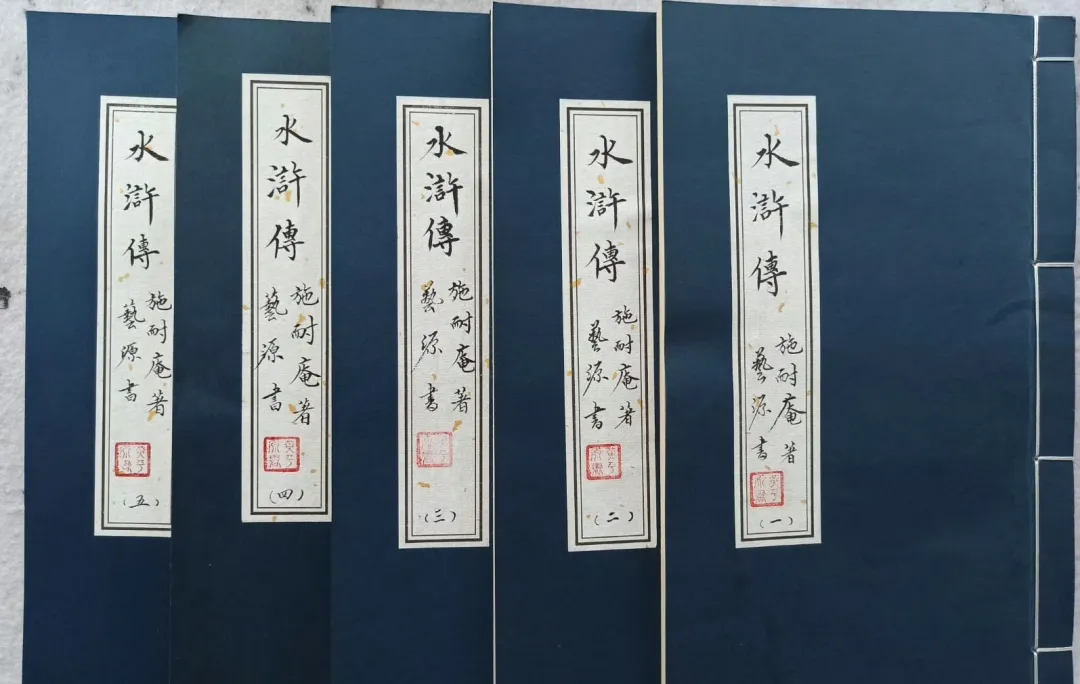 水滸傳
施耐庵著
藝源書
（一）
水滸傳
施耐庵著
藝源書
（二）
水滸傳
施耐庵著
藝源書
（三）
水滸傳
施耐庵著
藝源書
（四）
水滸傳
施耐庵著
藝源書
（五）